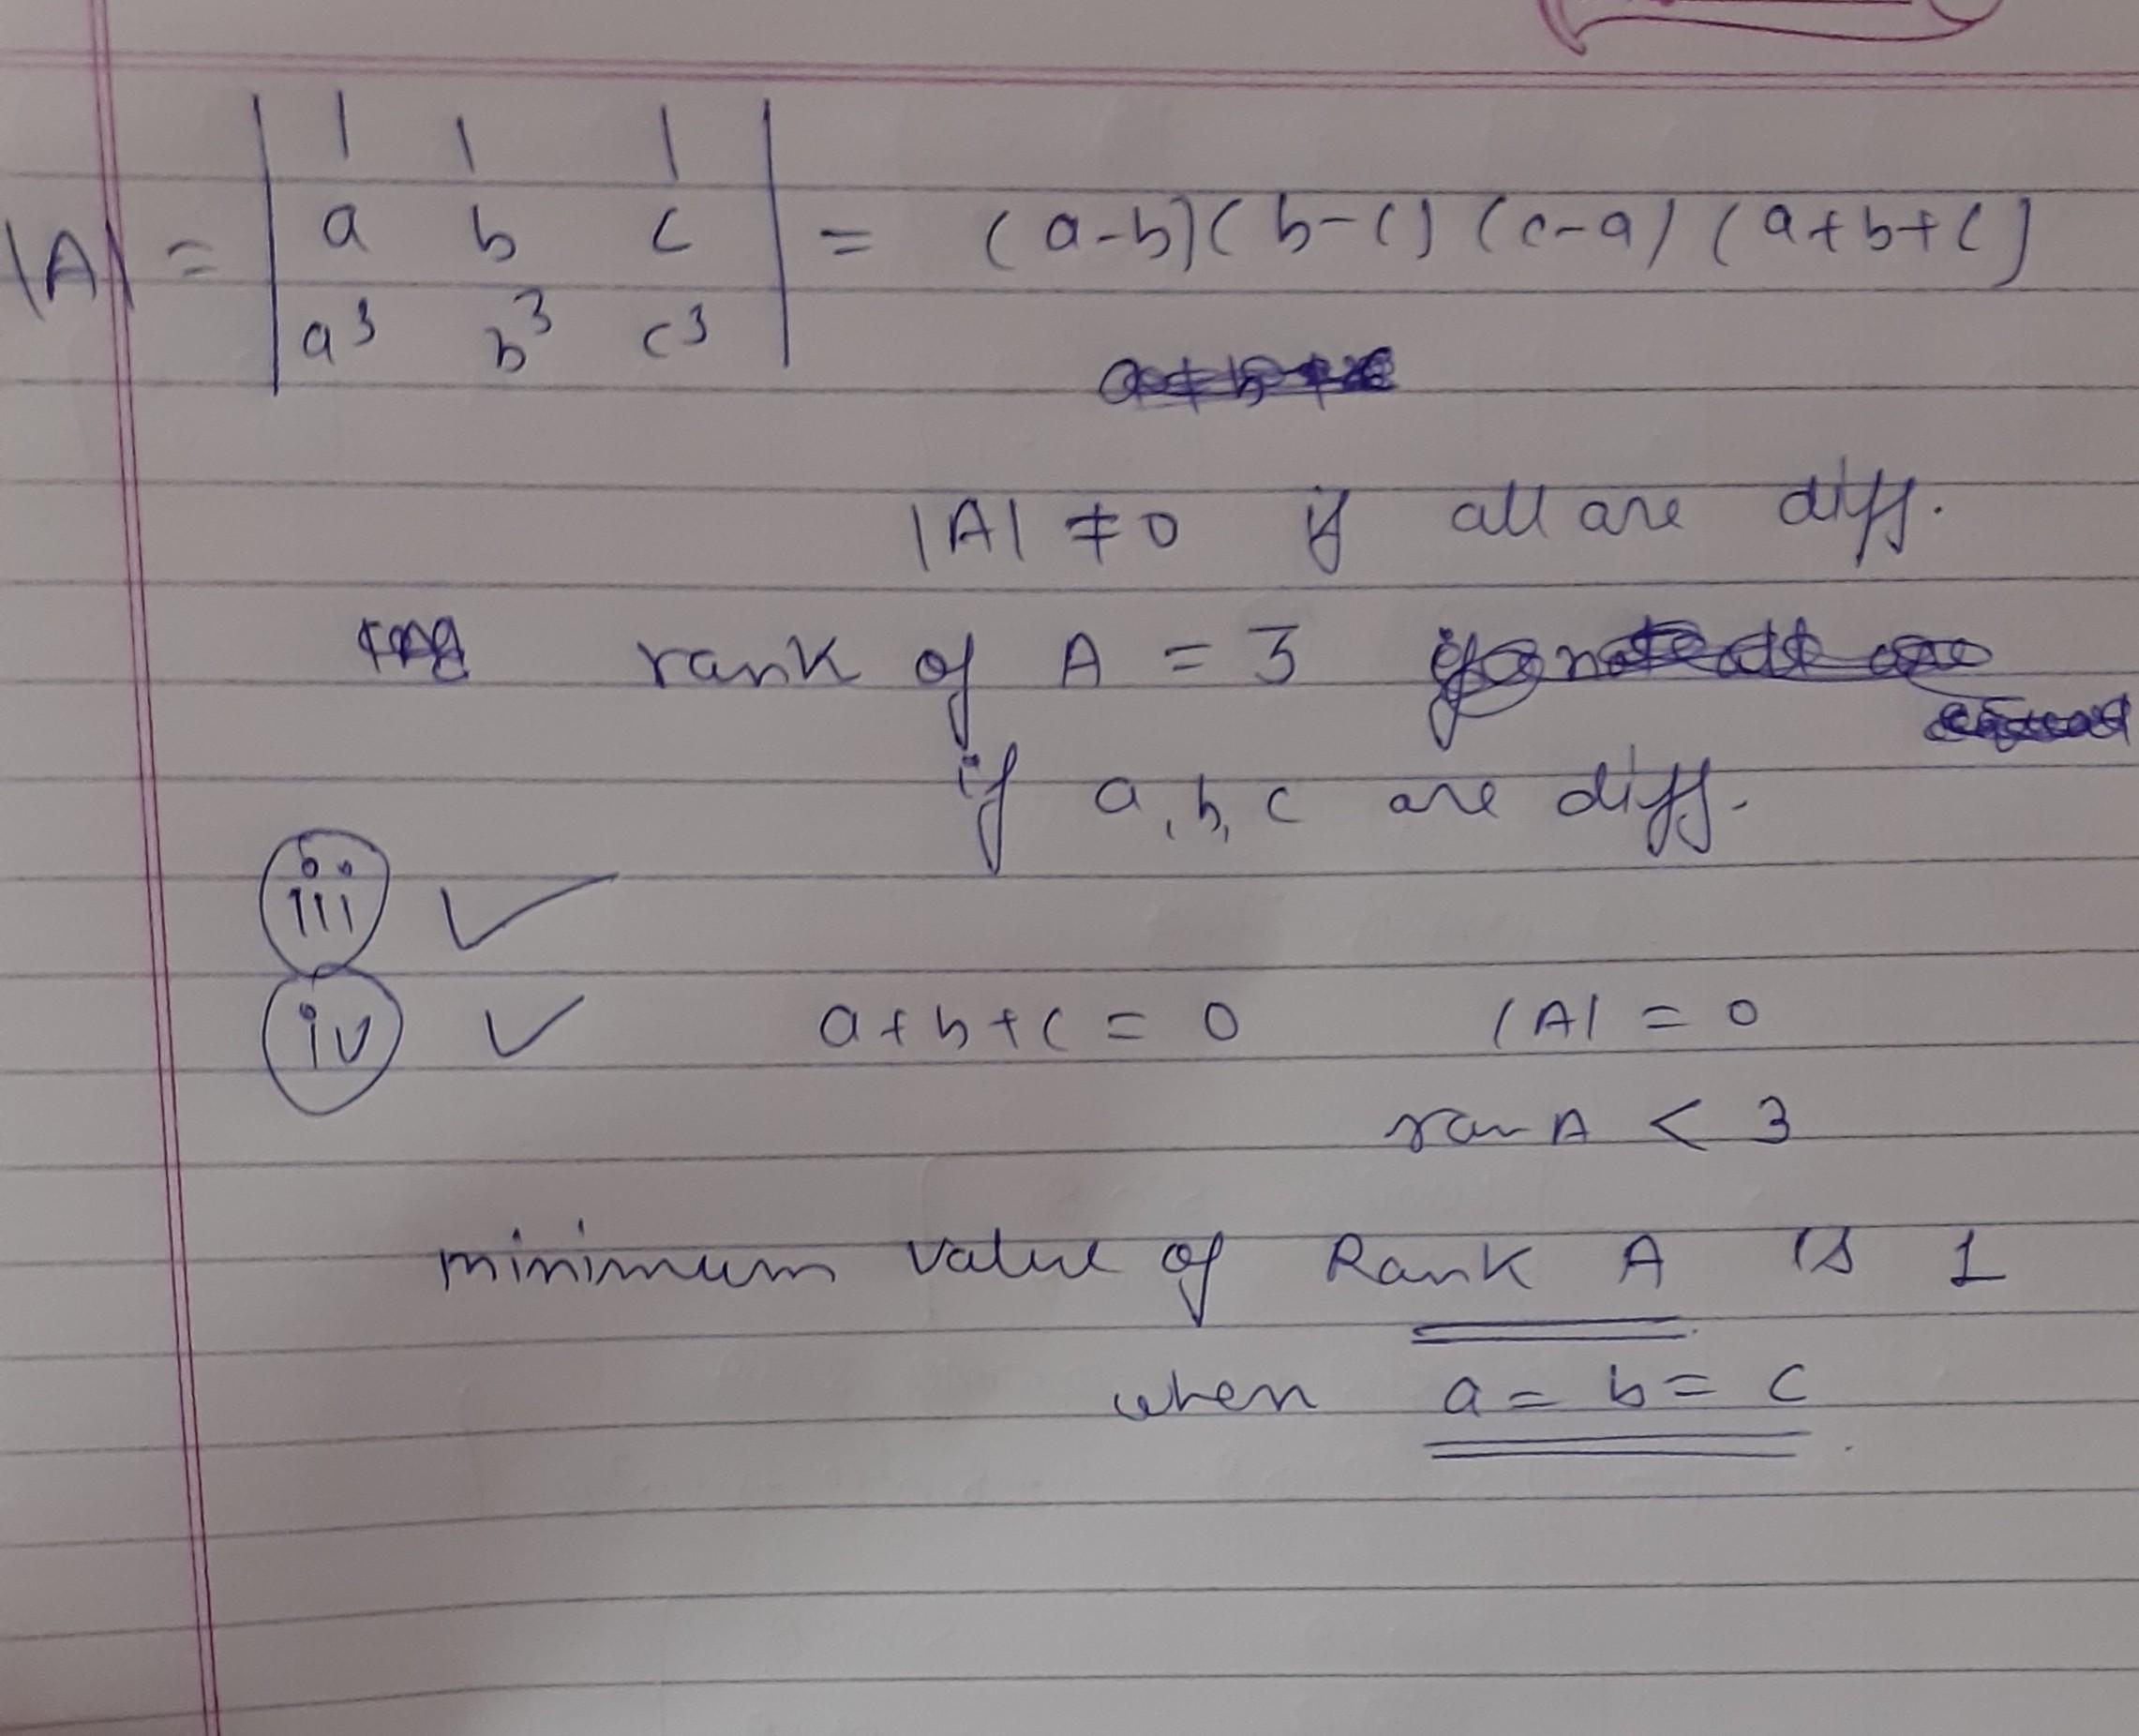 |A| = | 1 1 1 |
| a b c | = (a-b)(b-c)(c-a)(a+b+c)
| a³ b³ c³ |
|A| ≠ 0 if all are diff.
rank of A = 3
if a, b, c are diff.
iii ✓
iv ✓ a+b+c = 0 |A| = 0
ran A < 3
minimum value of Rank A is 1
when a = b = c